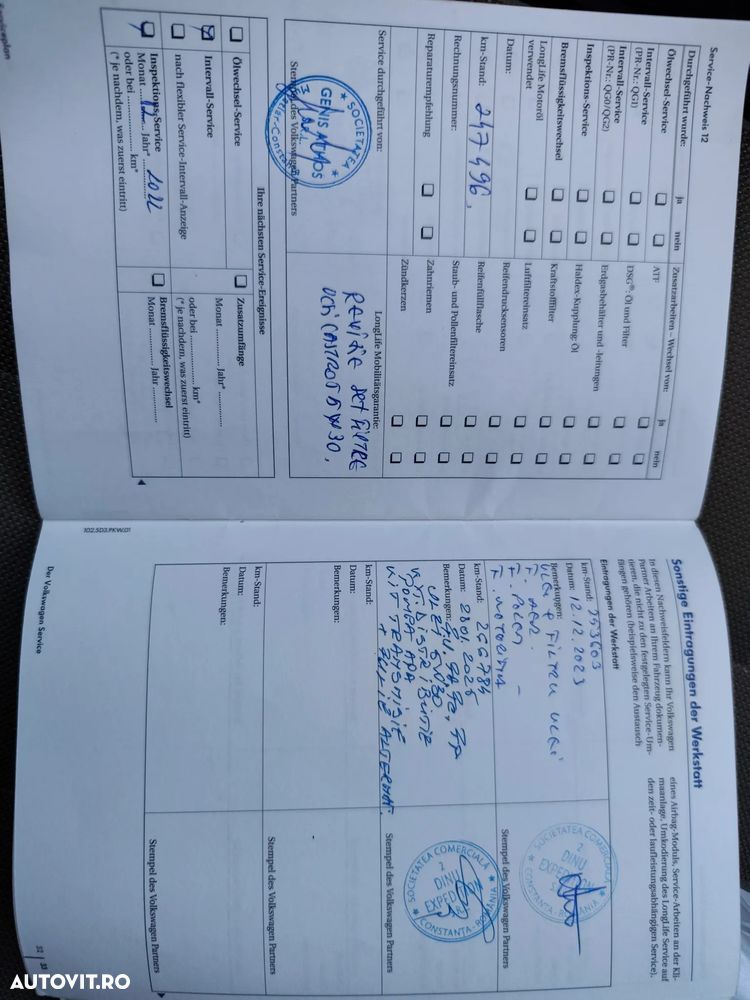 Serviceplan
Service-Nachweis 12
Durchgeführt wurde: ja nein
Ölwechsel-Service
Intervall-Service
(PR-Nr.: QG1)
Intervall-Service
(PR-Nr.: QG0/QG2)
Inspektions-Service
Bremsflüssigkeitswechsel
LongLife Motoröl
verwendet
Datum:
km-Stand: 247496,
Rechnungsnummer:
Reparaturempfehlung
Zusatzarbeiten – Wechsel von: ja nein
ATF
DSG®: Öl und Filter
Erdgasbehälter und -leitungen
Haldex-Kupplung: Öl
Kraftstofffilter
Luftfiltereinsatz
Reifendrucksensoren
Reifenfüllflasche
Staub- und Pollenfiltereinsatz
Zahnriemen
Zündkerzen
Service durchgeführt von:
SOCIETATEA
GENIS
Stempel des Volkswagen Partners
LongLife Mobilitätsgarantie:
REVIZIE SET FILTRE
OCI CASTROL 5W30,
Ihre nächsten Service-Ereignisse
Ölwechsel-Service
Intervall-Service
nach flexibler Service-Intervall-Anzeige
Inspektions-Service
Monat ...12... Jahr* 2022
oder bei .................. km*
(* je nachdem, was zuerst eintritt)
Zusatzumfänge
Monat ............... Jahr* ...............
oder bei .................. km*
(* je nachdem, was zuerst eintritt)
Bremsflüssigkeitswechsel
Monat ............... Jahr ...............
102.5D3.PKW.01
Sonstige Eintragungen der Werkstatt
In diesen Nachweisfeldern kann Ihr Volkswagen
Partner Arbeiten an Ihrem Fahrzeug dokumen-
tieren, die nicht zu den festgelegten Service-Um-
fängen gehören (beispielsweise den Austausch
eines Airbag-Moduls, Service-Arbeiten an der Kli-
maanlage, Umkodierung des LongLife Service auf
den zeit- oder laufleistungsabhängigen Service).
Eintragungen der Werkstatt
km-Stand: 253603
Datum: 12.12.2023
Bemerkungen:
ULEI + FILTRU ULEI
F. AER
F. POLEN
F. MOTORINA
SOCIETATEA COMERCIALA
2
DINU
EXPEDITION
CONSTANTA - ROMANIA
Stempel des Volkswagen Partners
km-Stand: 266784
Datum:
Bemerkungen:
ULEI 5W30
KIT DISTRIBUTIE
POMPA APA
KIT TRANSMISIE
+ FULIE ALTERNAT.
SOCIETATEA COMERCIALA
2
DINU
EXPEDITION
CONSTANTA - ROMANIA
Stempel des Volkswagen Partners
km-Stand:
Datum:
Bemerkungen:
Stempel des Volkswagen Partners
km-Stand:
Datum:
Bemerkungen:
Stempel des Volkswagen Partners
Der Volkswagen Service
AUTOVIT.RO